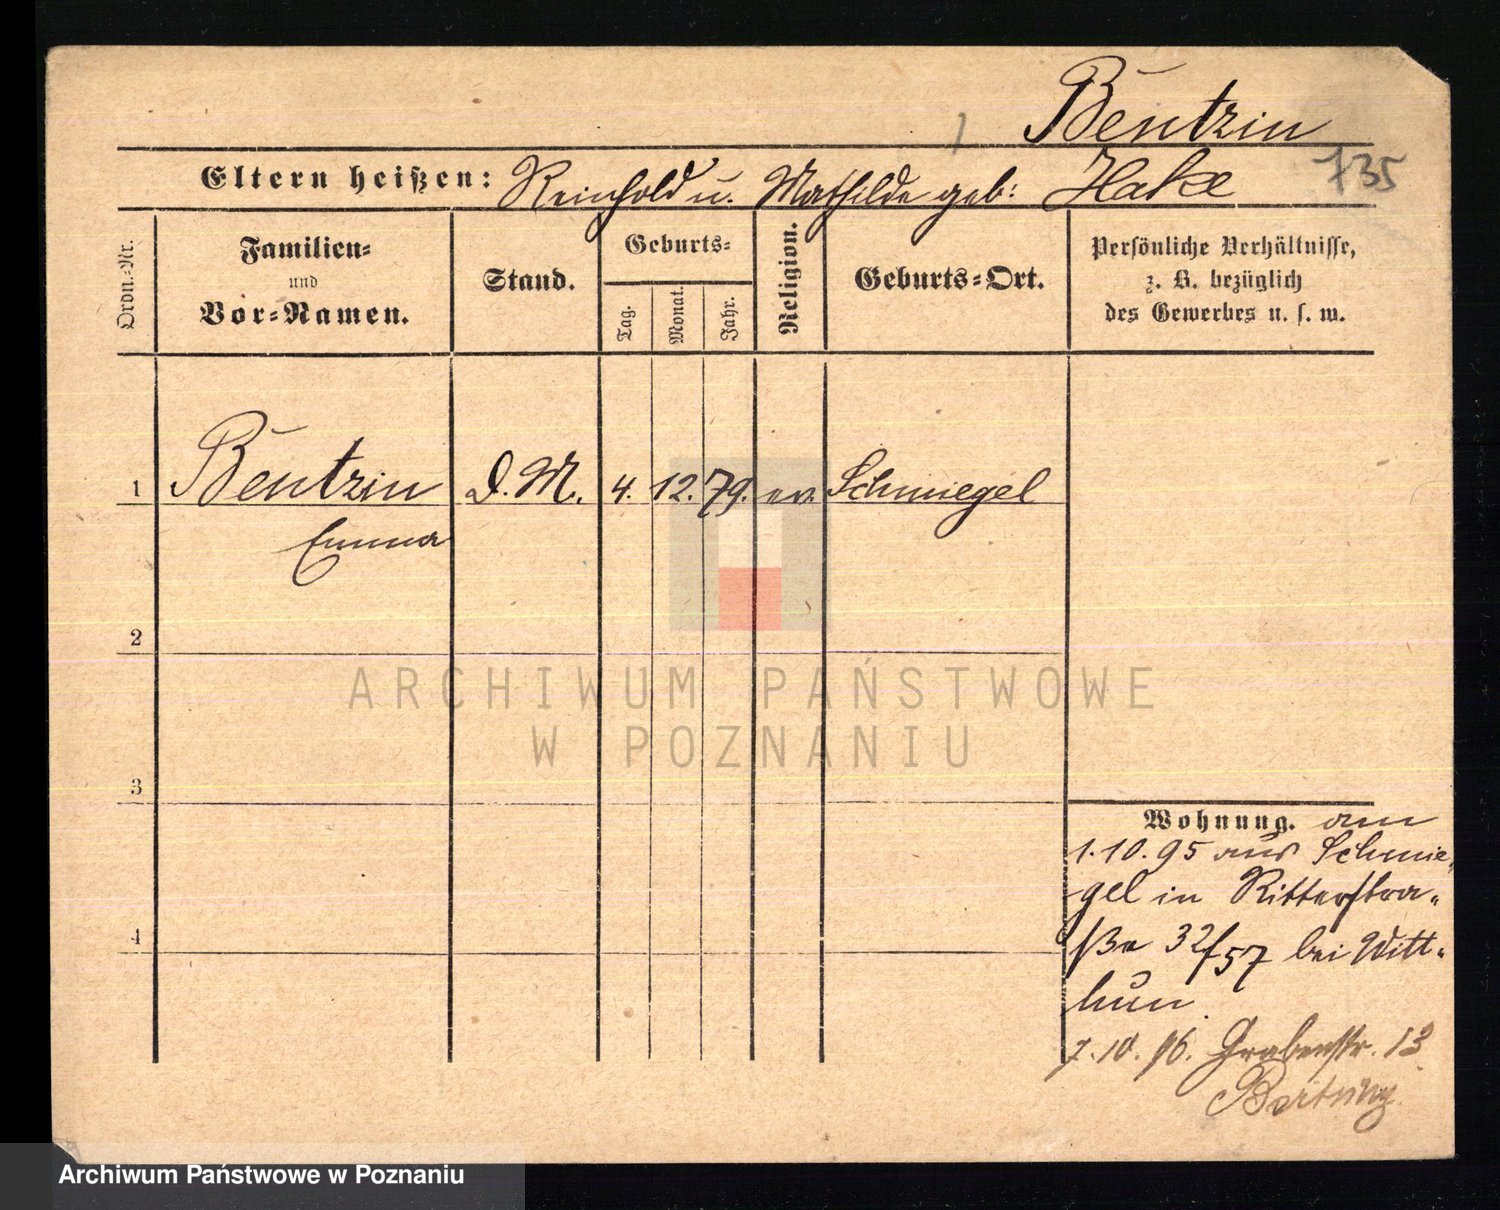 Bentzin
Eltern heißen: Reinhold u. Mathilde geb: Hake 735
Ordn.-Nr.
Familien-
und
Vor-Namen.
Stand.
Geburts-
Tag.
Monat.
Jahr.
Religion.
Geburts-Ort.
Persönliche Verhältnisse,
z. B. bezüglich
des Gewerbes u. s. w.
1 Bentzin D. M. 4. 12. 79. ev. Schmiegel
Emma
2
3
4
ARCHIWUM PAŃSTWOWE
W POZNANIU
Wohnung. am
1.10.95 aus Schmie-
gel in Ritterstra-
ße 32/57 bei Witt-
hun.
7.10.96. Grabenstr. 13
Archiwum Państwowe w Poznaniu